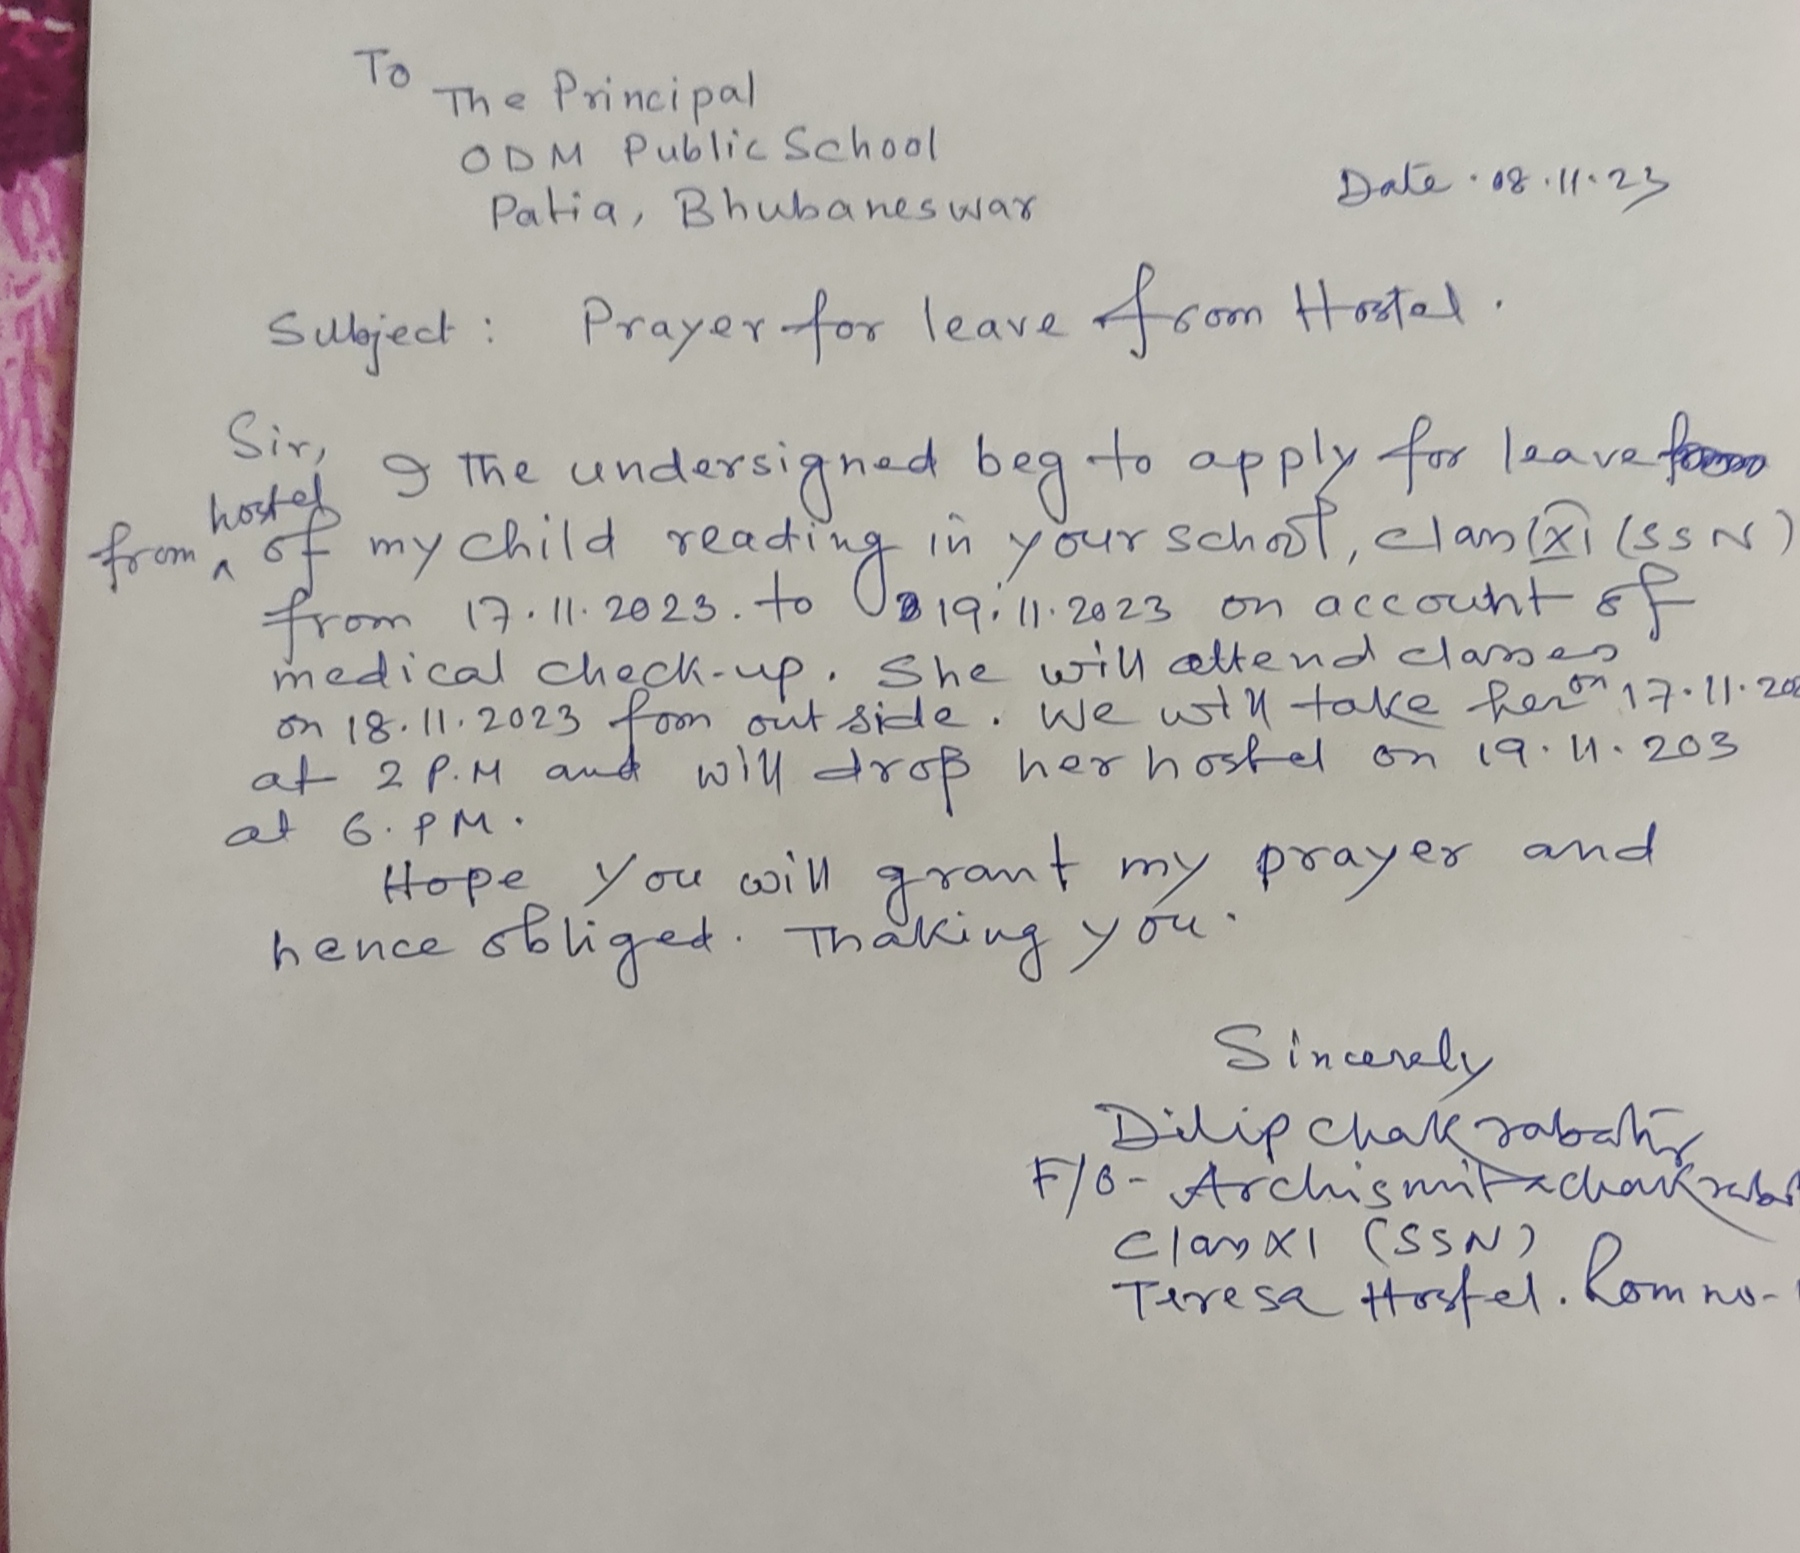 To
The Principal
ODM Public School
Patia, Bhubaneswar
Date. 08.11.23
Subject: Prayer for leave from Hostel.
Sir,
I the undersigned beg to apply for leave
from hostel of my child reading in your school, class XI (SSN)
from 17.11.2023. to 19.11.2023 on account of
medical check-up. She will attend classes
on 18.11.2023 from out side. We will take her on 17.11.202
at 2 P.M and will drop her hostel on 19.11.203
at 6. PM.
Hope you will grant my prayer and
hence obliged. Thaking you.
Sincerely
Dilip Chakrabarty
F/O- Archismita Chakrabar
Class XI (SSN)
Teresa Hostel. Room no-